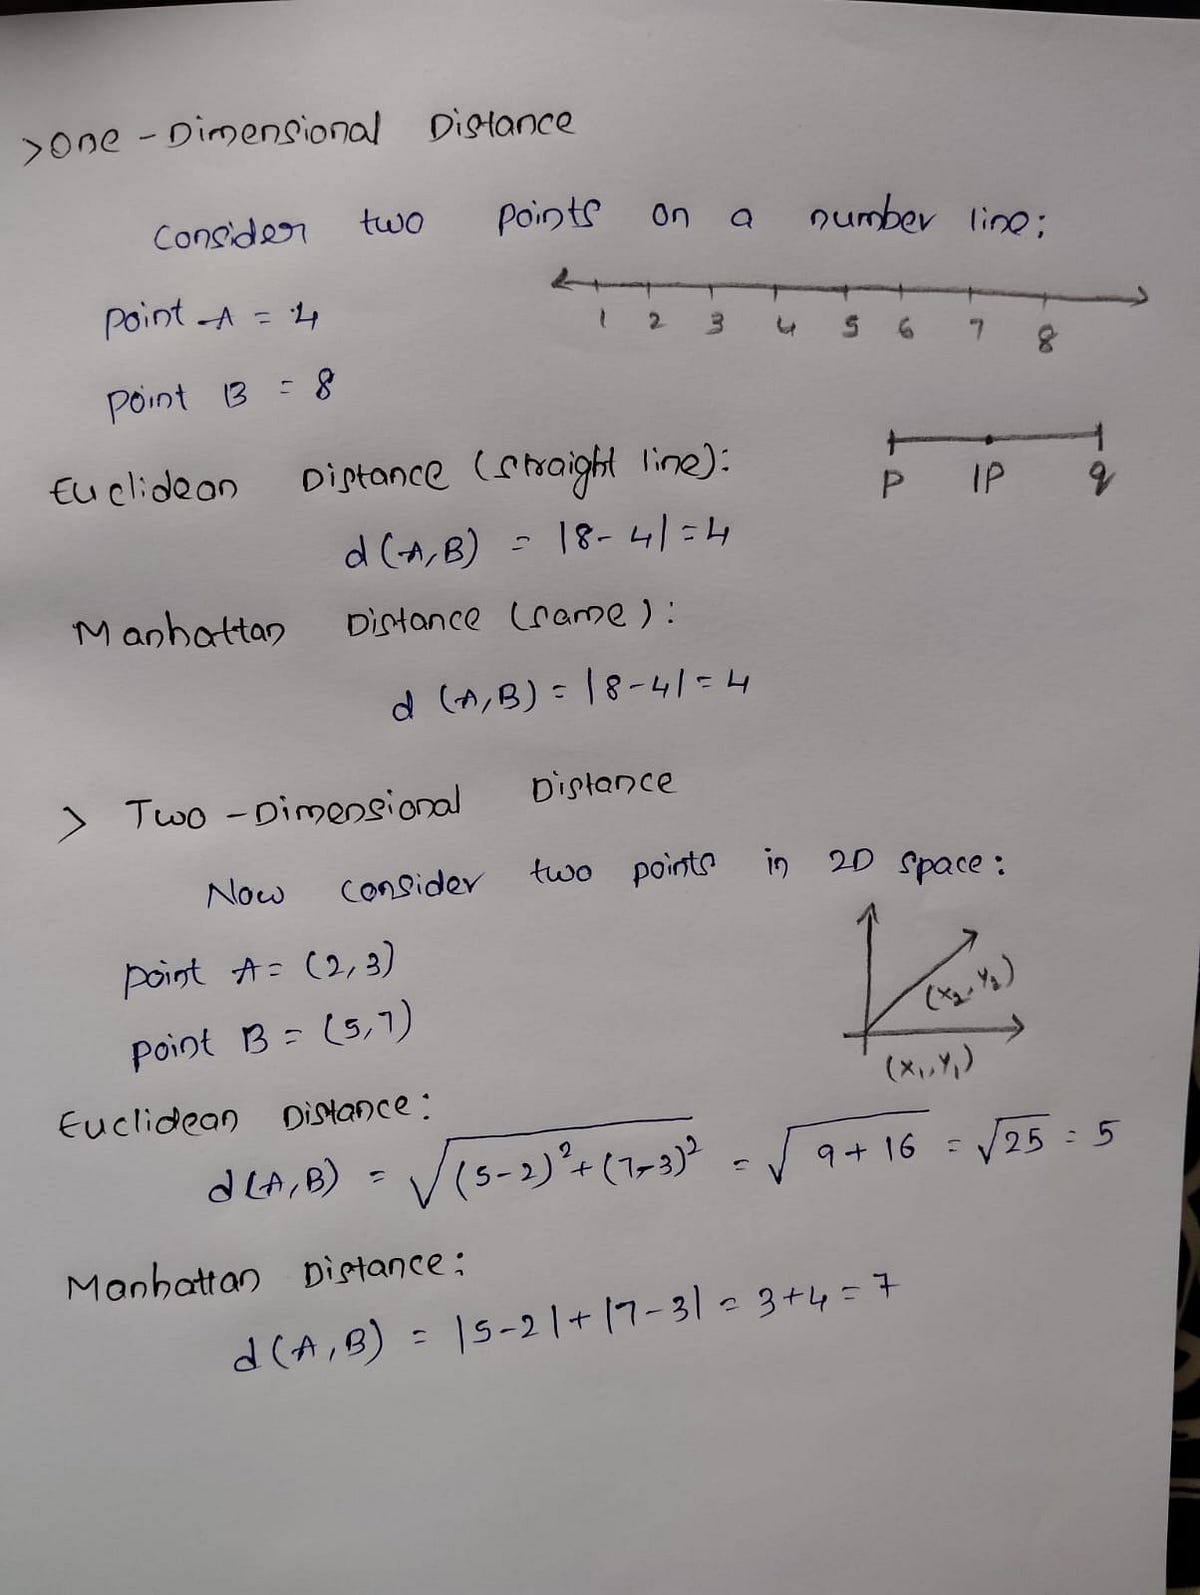 >One - Dimensional Distance
Consider two points on a number line:
point A = 4
1 2 3 4 5 6 7 8
point B = 8
Euclidean Distance (straight line):
P 1P q
d (A,B) = |8- 4| = 4
Manhattan Distance (same) :
d (A,B) = |8-4| = 4
> Two - Dimensional Distance
Now consider two points in 2D space :
point A = (2,3)
(x₂, y₂)
point B = (5,7)
(x₁, y₁)
Euclidean Distance :
d(A,B) = √(5-2)²+(7-3)² = √9+16 = √25 = 5
Manhattan Distance :
d(A,B) = |5-2|+|7-3| = 3+4 = 7